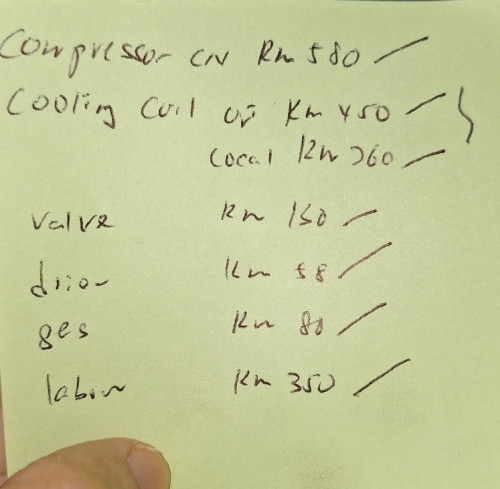 Compressor CN Rm 580
Cooling Coil ori Rm 450
Local Rm 260
Valve Rm 150
drier Rm 58
ges Rm 80
labour Rm 350